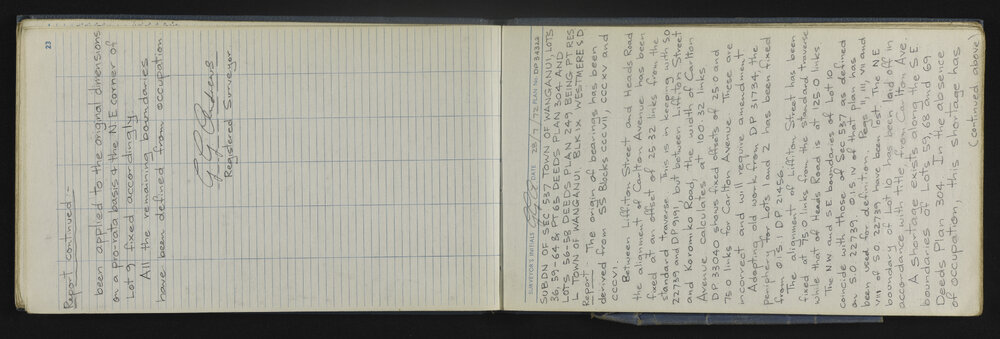 SURVEYOR'S INITIALS DATE 28/7/72 PLAN No. DP34322
SUBDN OF SEC 537 TOWN OF WANGANUI, LOTS
36, 59-64 & PT 65 DEEDS PLAN 304 AND
LOTS 56-58 DEEDS PLAN 249 BEING PT RES
TOWN OF WANGANUI BLK IX WESTMERE SD
Report The origin of bearings has been
derived from SS Blocks CCCVII, CCCXV and
CCCVI.
Between Liffiton Street and Heads Road
the alignment of Carlton Avenue has been
fixed at an offset of 25 32 links from the
standard traverse This is in keeping with SO
22739 and DP 9191, but between Liffiton Street
and Koromiko Road, the width of Carlton
Avenue calculates at 100 32 links
DP 33040 shows fixed offsets of 25 0 and
75 0 links for Carlton Avenue. These are
incorrect and will require amendment
Adopting old work from DP 31734, the
periphery for Lots 1 and 2 has been fixed
from OIS I DP 21456.
The alignment of Liffiton Street has been
fixed at 75 0 links from the standard traverse
while that of Heads Road is at 125 0 links
The NW and SE boundaries of Lot 10
coincide with those of Sec 537 as defined
on SO 22739. OIS IV of that plan, has
been used for definition. Pegs II, III, VII and
VIII of SO 22739 have been lost The NE
boundary of Lot 10 has been laid off in
accordance with title, from Carlton Ave.
A shortage exists along the SE
boundaries of Lots 59, 68 and 69
Deeds Plan 304 In the absence
of occupation, this shortage has
(continued above)
23
Report continued:-
been applied to the original dimensions
on a pro-rata basis & the N.E corner of
Lot 9 fixed accordingly
All the remaining boundaries
have been defined from occupation
Registered Surveyor